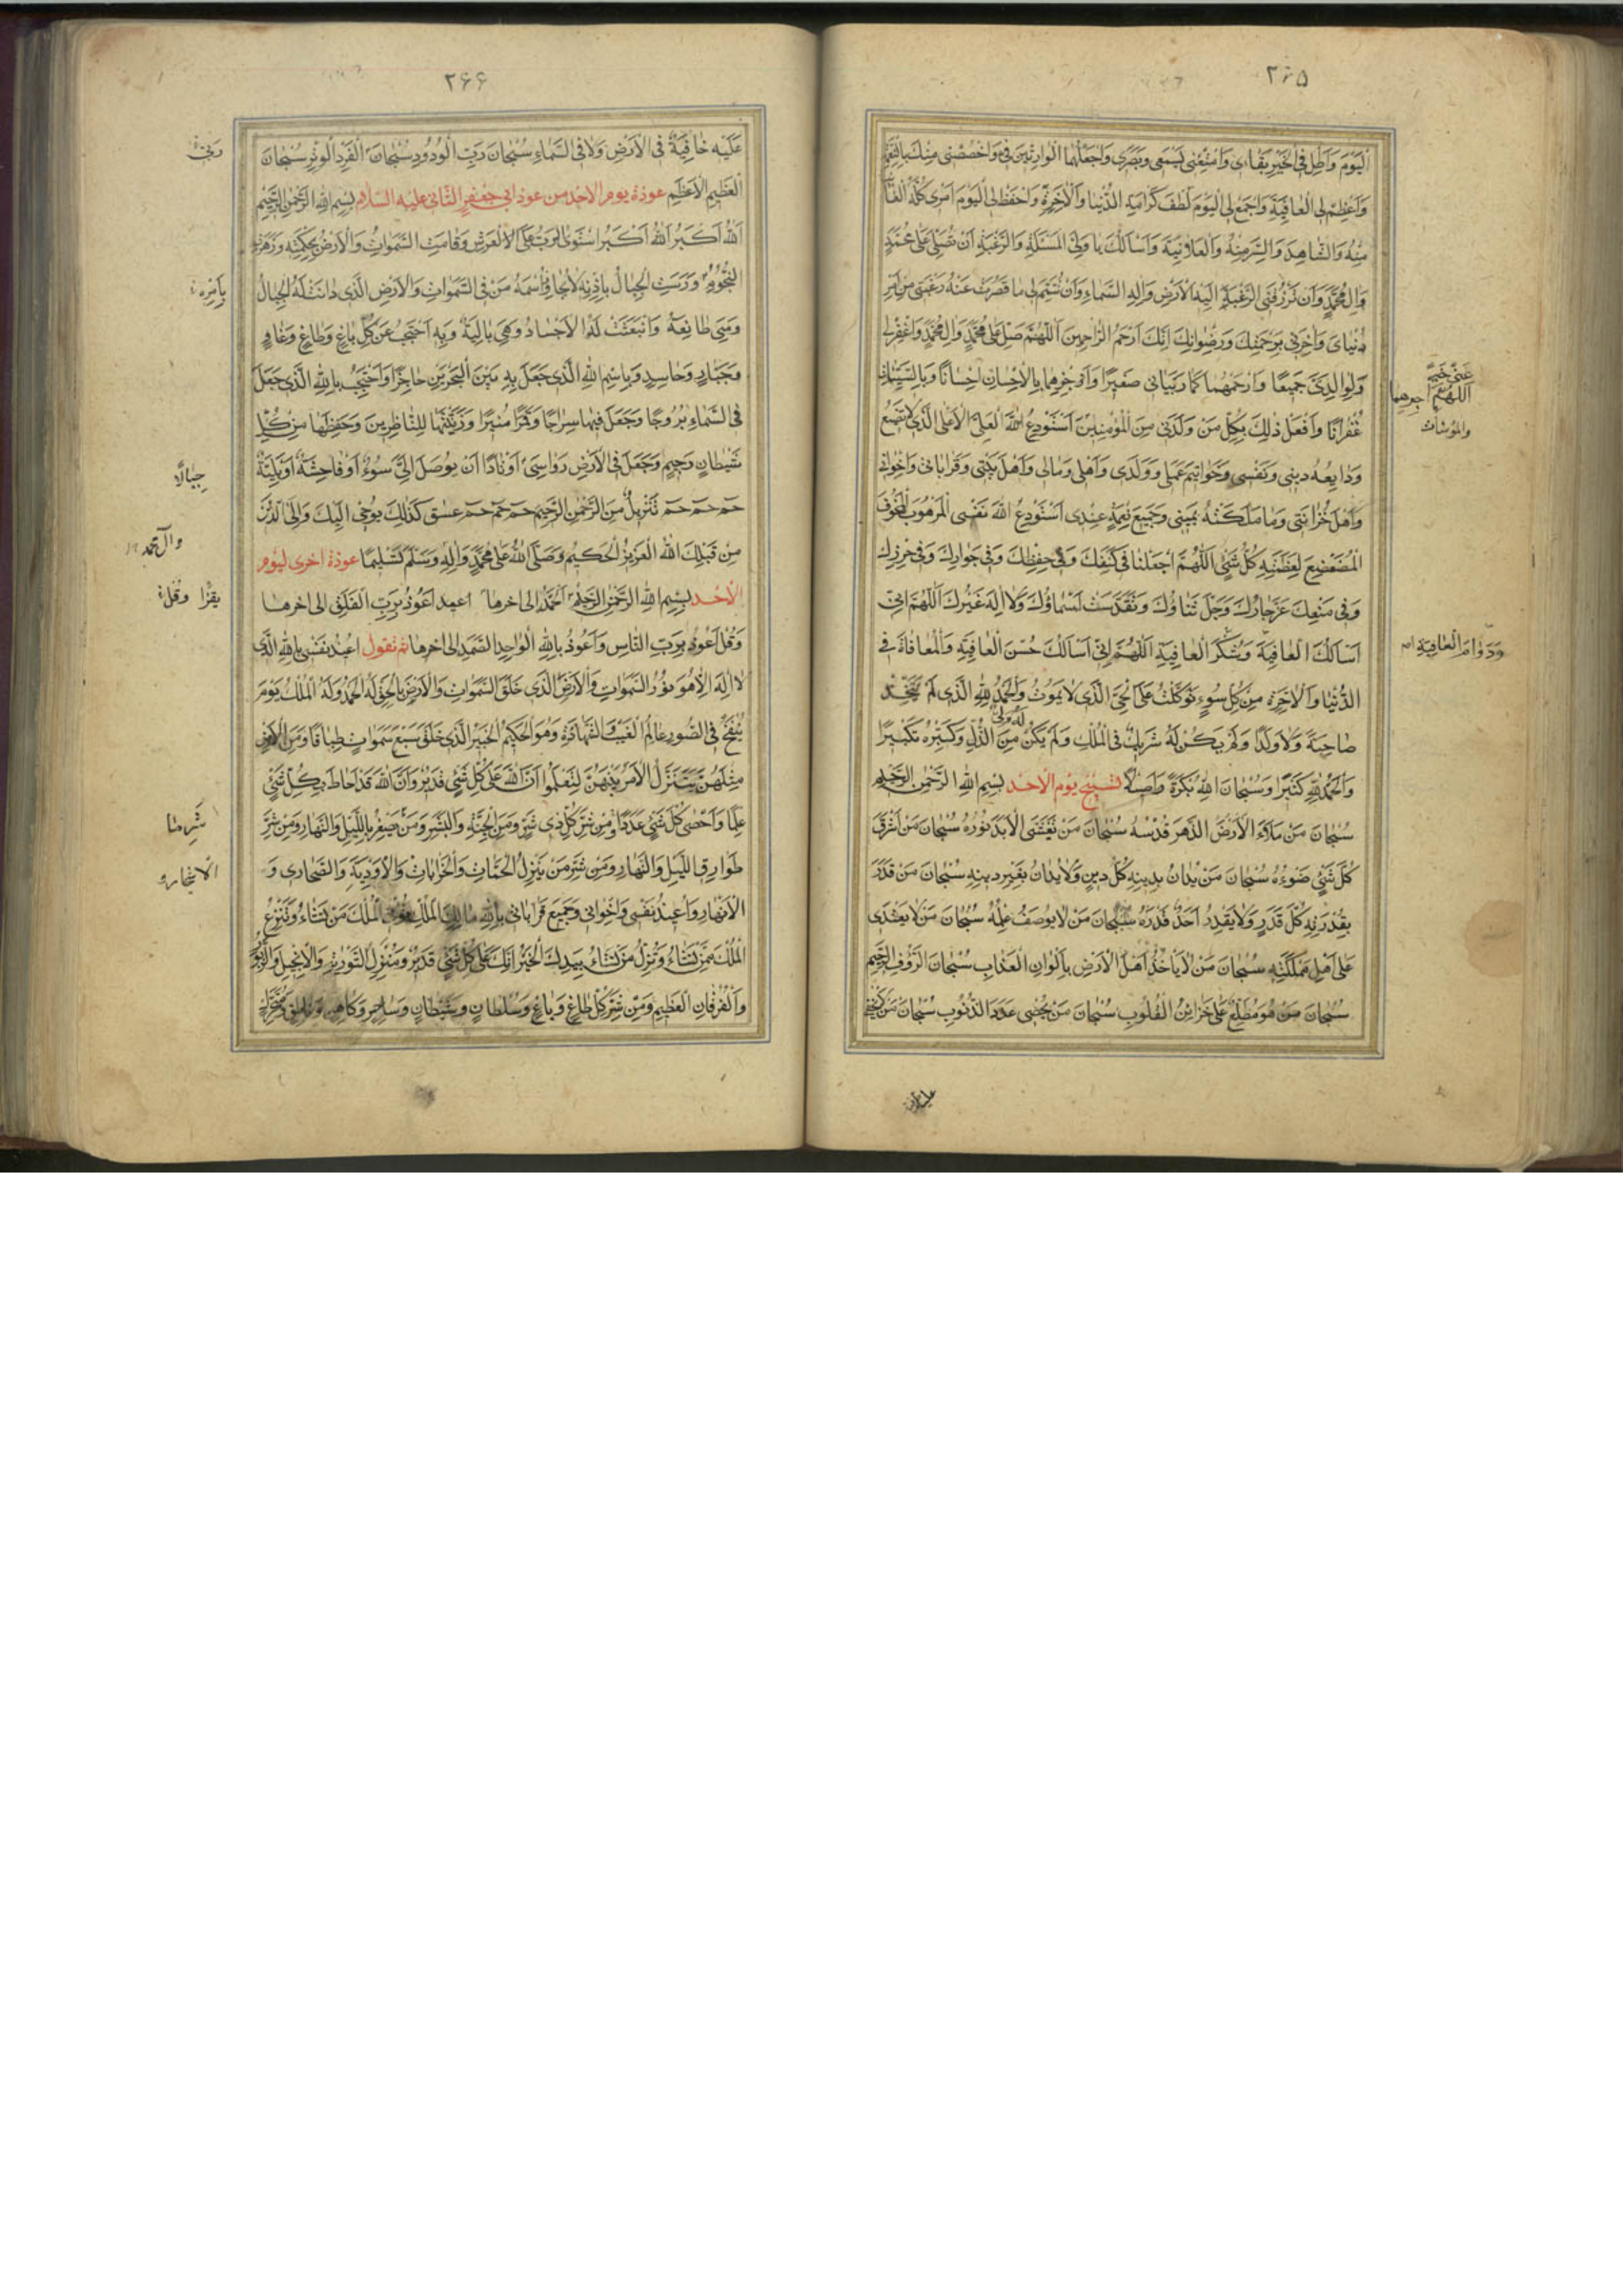 ۲۶۵
اَلْيَوْمَ وَاَطِلْ فِى الْخَيْرِ بَقٰائى وَاَمْتِعْنى بِسَمْعى وَبَصَرى وَاجْعَلْهُمَا الْوارِثَيْنِ مِنّى وَاخْصُصْنى مِنْكَ بِالنِّعْمَةِ
وَاَعْظِمْ لِىَ الْعافِيَةَ وَاجْمَعْ لِىَ الْيَوْمَ لُطْفَ كَرامَةِ الدُّنْيا وَالْاٰخِرَةِ وَاحْفَظْ لِىَ الْيَوْمَ اَمْرى كُلَّهُ الْغائِبَ
مِنْهُ وَالشّاهِدَ وَالسِّرَّ مِنْهُ وَالْعَلانِيَةَ وَاَسْاَلُكَ يا وَلِىَّ الْمَسْئَلَةِ وَالرَّغْبَةِ اَنْ تُصَلِّىَ عَلى مُحَمَّدٍ
وَاٰلِ مُحَمَّدٍ وَاَنْ تَرْزُقَنِى الرَّغْبَةَ اِلَيْكَ اِلهَ الْاَرْضِ وَاِلهَ السَّماءِ وَاَنْ تُتِمَّ لى ما قَصُرَتْ عَنْهُ رَغْبَتى مِنْ اَمْرِ
دُنْياىَ وَاٰخِرَتى بِرَحْمَتِكَ وَرِضْوانِكَ اِنَّكَ اَرْحَمُ الرّاحِمينَ اَللّهُمَّ صَلِّ عَلى مُحَمَّدٍ وَاٰلِ مُحَمَّدٍ وَاغْفِرْلى
وَلِوالِدَىَّ جَميعًا وَارْحَمْهُما كَما رَبَّيانى صَغيرًا وَاجْزِهِما بِالْاِحْسانِ اِحْسانًا وَبِالسَّيِّئاتِ
غُفْرانًا وَافْعَلْ ذلِكَ بِكُلِّ مَنْ وَلَدَنى مِنَ الْمُؤْمِنينَ اَسْتَوْدِعُ اللهَ الْعَلِىَّ الْاَعْلَى الَّذى لا تَضيعُ
وَدايِعُهُ دينى وَنَفْسى وَخَواتيمَ عَمَلى وَوَلَدى وَاَهْلى وَمالى وَاَهْلَ بَيْتى وَقَراباتى وَاِخْوانى
وَاَهْلَ حُزانَتى وَما مَلَكَتْهُ يَمينى وَجَميعَ نِعَمِهِ عِنْدى اَسْتَوْدِعُ اللهَ نَفْسِىَ الْمَرْهُوبَ الْمَخُوفَ
الْمُتَضَعْضِعَ لِعَظَمَتِهِ كُلُّ شَىْءٍ اَللّهُمَّ اجْعَلْنا فى كَنَفِكَ وَفى حِفْظِكَ وَفى جِوارِكَ وَفى حِرْزِكَ
وَفى مَنْعِكَ عَزَّ جارُكَ وَجَلَّ ثَناؤُكَ وَتَقَدَّسَتْ اَسْماؤُكَ وَلا اِلهَ غَيْرُكَ اَللّهُمَّ اِنّى
اَسْاَلُكَ الْعافِيَةَ وَشُكْرَ الْعافِيَةِ اَللّهُمَّ اِنّى اَسْاَلُكَ حُسْنَ الْعافِيَةِ وَالْمُعافاةَ فِى
الدُّنْيا وَالْاٰخِرَةِ مِنْ كُلِّ سُوءٍ تَوَكَّلْتُ عَلَى الْحَىِّ الَّذى لا يَمُوتُ وَالْحَمْدُ لِلّهِ الَّذى لَمْ يَتَّخِذْ
صاحِبَةً وَلا وَلَدًا وَلَمْ يَكُنْ لَهُ شَريكٌ فِى الْمُلْكِ وَلَمْ يَكُنْ لَهُ وَلِىٌّ مِنَ الذُّلِّ وَكَبِّرْهُ تَكْبيرًا
وَالْحَمْدُ لِلّهِ كَثيرًا وَسُبْحانَ اللهِ بُكْرَةً وَاَصيلًا تسبيح يوم الاحد بِسْمِ اللهِ الرَّحْمنِ الرَّحيمِ
سُبْحانَ مَنْ مَلَاَ الْاَرْضَ الدَّهْرَ قُدْسُهُ سُبْحانَ مَنْ تَغَشَّى الْاَبَدَ نُورُهُ سُبْحانَ مَنْ اَشْرَقَ
كُلَّ شَىْءٍ ضَوْءُهُ سُبْحانَ مَنْ يُدانُ بِدينِهِ كُلُّ دينٍ وَلا يُدانُ بِغَيْرِ دينِهِ سُبْحانَ مَنْ قَدَّرَ
بِقُدْرَتِهِ كُلَّ قَدَرٍ وَلا يَقْدِرُ اَحَدٌ قَدْرَهُ سُبْحانَ مَنْ لا يُوصَفُ عِلْمُهُ سُبْحانَ مَنْ لا يَعْتَدى
عَلى اَهْلِ مَمْلَكَتِهِ سُبْحانَ مَنْ لا يَأْخُذُ اَهْلَ الْاَرْضِ بِاَلْوانِ الْعَذابِ سُبْحانَ الرَّؤُفِ الرَّحيمِ
سُبْحانَ مَنْ هُوَ مُطَّلِعٌ عَلى خَزائِنِ الْقُلُوبِ سُبْحانَ مَنْ يُحْصى عَدَدَ الذُّنُوبِ سُبْحانَ مَنْ لا يَخْفى
اللّهُمَّ اجزهما
وَدَوامَ الْعافِيَةِ
عليه
۲۶۶
عَلَيْهِ خافِيَةٌ فِى الْاَرْضِ وَلا فِى السَّماءِ سُبْحانَ رَبِّىَ الْوَدُودِ سُبْحانَ الْفَرْدِ الْوِتْرِ سُبْحانَ
الْعَظيمِ الْاَعْظَمِ عوذة يوم الاحد من عوذ ابى جعفر الثانى عليه السلام بِسْمِ اللهِ الرَّحْمنِ الرَّحيمِ
اَللهُ اَكْبَرُ اَللهُ اَكْبَرُ اسْتَوَى الرَّبُّ عَلَى الْعَرْشِ وَقامَتِ السَّمواتُ وَالْاَرْضُ بِحِكْمَتِهِ وَزَهَرَتِ
النُّجُومُ وَرَسَتِ الْجِبالُ بِاِذْنِهِ لا يُجاوِزُ اسْمَهُ مَنْ فِى السَّمواتِ وَالْاَرْضِ الَّذى دانَتْ لَهُ الْجِبالُ
وَهِىَ طائِعَةٌ وَانْبَعَثَتْ لَهُ الْاَجْسادُ وَهِىَ بالِيَةٌ وَبِهِ اَحْتَجِبُ عَنْ كُلِّ باغٍ وَطاغٍ وَعادٍ
وَجَبّارٍ وَحاسِدٍ وَبِاسْمِ اللهِ الَّذى جَعَلَ بِهِ بَيْنَ الْبَحْرَيْنِ حاجِزًا وَاَحْتَجِبُ بِاللهِ الَّذى جَعَلَ
فِى السَّماءِ بُرُوجًا وَجَعَلَ فيها سِراجًا وَقَمَرًا مُنيرًا وَزَيَّنَها لِلنّاظِرينَ وَحَفِظَها مِنْ كُلِّ
شَيْطانٍ رَجيمٍ وَجَعَلَ فِى الْاَرْضِ رَواسِىَ اَوْتادًا اَنْ يُوصَلَ اِلَىَّ سُوءٌ اَوْ فاحِشَةٌ اَوْ بَلِيَّةٌ
حم حم حم تَنْزيلٌ مِنَ الرَّحْمنِ الرَّحيمِ حم حم حم عسق كَذلِكَ يُوحى اِلَيْكَ وَاِلَى الَّذينَ
مِنْ قَبْلِكَ اللهُ الْعَزيزُ الْحَكيمُ وَصَلَّى اللهُ عَلى مُحَمَّدٍ وَاٰلِهِ وَسَلَّمَ تَسْليمًا عوذة اخرى ليوم
الاحد بِسْمِ اللهِ الرَّحْمنِ الرَّحيمِ اَلْحَمْدُ الى اخرها اَعُوذُ بِرَبِّ الْفَلَقِ الى اخرها
وَقُلْ اَعُوذُ بِرَبِّ النّاسِ وَاَعُوذُ بِاللهِ الْواحِدِ الصَّمَدِ الى اخرها ثم تقول اُعيذُ نَفْسى بِاللهِ الَّذى
لا اِلهَ اِلّا هُوَ نُورُ السَّمواتِ وَالْاَرْضِ الَّذى خَلَقَ السَّمواتِ وَالْاَرْضَ بِالْحَقِّ لَهُ الْحَمْدُ وَلَهُ الْمُلْكُ يَوْمَ
يُنْفَخُ فِى الصُّورِ عالِمُ الْغَيْبِ وَالشَّهادَةِ وَهُوَ الْحَكيمُ الْخَبيرُ الَّذى خَلَقَ سَبْعَ سَمواتٍ طِباقًا وَمِنَ الْاَرْضِ
مِثْلَهُنَّ يَتَنَزَّلُ الْاَمْرُ بَيْنَهُنَّ لِتَعْلَمُوا اَنَّ اللهَ عَلى كُلِّ شَىْءٍ قَديرٌ وَاَنَّ اللهَ قَدْ اَحاطَ بِكُلِّ شَىْءٍ
عِلْمًا وَاَحْصى كُلَّ شَىْءٍ عَدَدًا وَمِنْ شَرِّ كُلِّ ذى شَرٍّ وَمِنَ الْجِنَّةِ وَالْبَشَرِ وَمَنْ صَفَرَ بِاللَّيْلِ وَالنَّهارِ وَمِنْ شَرِّ
طَوارِقِ اللَّيْلِ وَالنَّهارِ وَمِنْ شَرِّ مَنْ يَنْزِلُ الْحَمّاماتِ وَالْخَراباتِ وَالْاَوْدِيَةَ وَالصَّحارى وَ
الْاَنْهارِ وَاُعيذُ نَفْسى وَاِخْوانى وَجَميعَ قَراباتى بِاللهِ مالِكِ الْمُلْكِ تُؤْتِى الْمُلْكَ مَنْ تَشاءُ وَتَنْزِعُ
الْمُلْكَ مِمَّنْ تَشاءُ وَتُذِلُّ مَنْ تَشاءُ بِيَدِكَ الْخَيْرُ اِنَّكَ عَلى كُلِّ شَىْءٍ قَديرٌ وَمُنْزِلِ التَّوْريةِ وَالْاِنْجيلِ وَالزَّبُورِ
وَالْفُرْقانِ الْعَظيمِ وَمِنْ شَرِّ كُلِّ طاغٍ وَباغٍ وَسُلْطانٍ وَشَيْطانٍ وَساحِرٍ وَكاهِنٍ
بِاَمْرِهِ
جِبالًا
وآل محمد
يقرأ وقل
الاشجار و